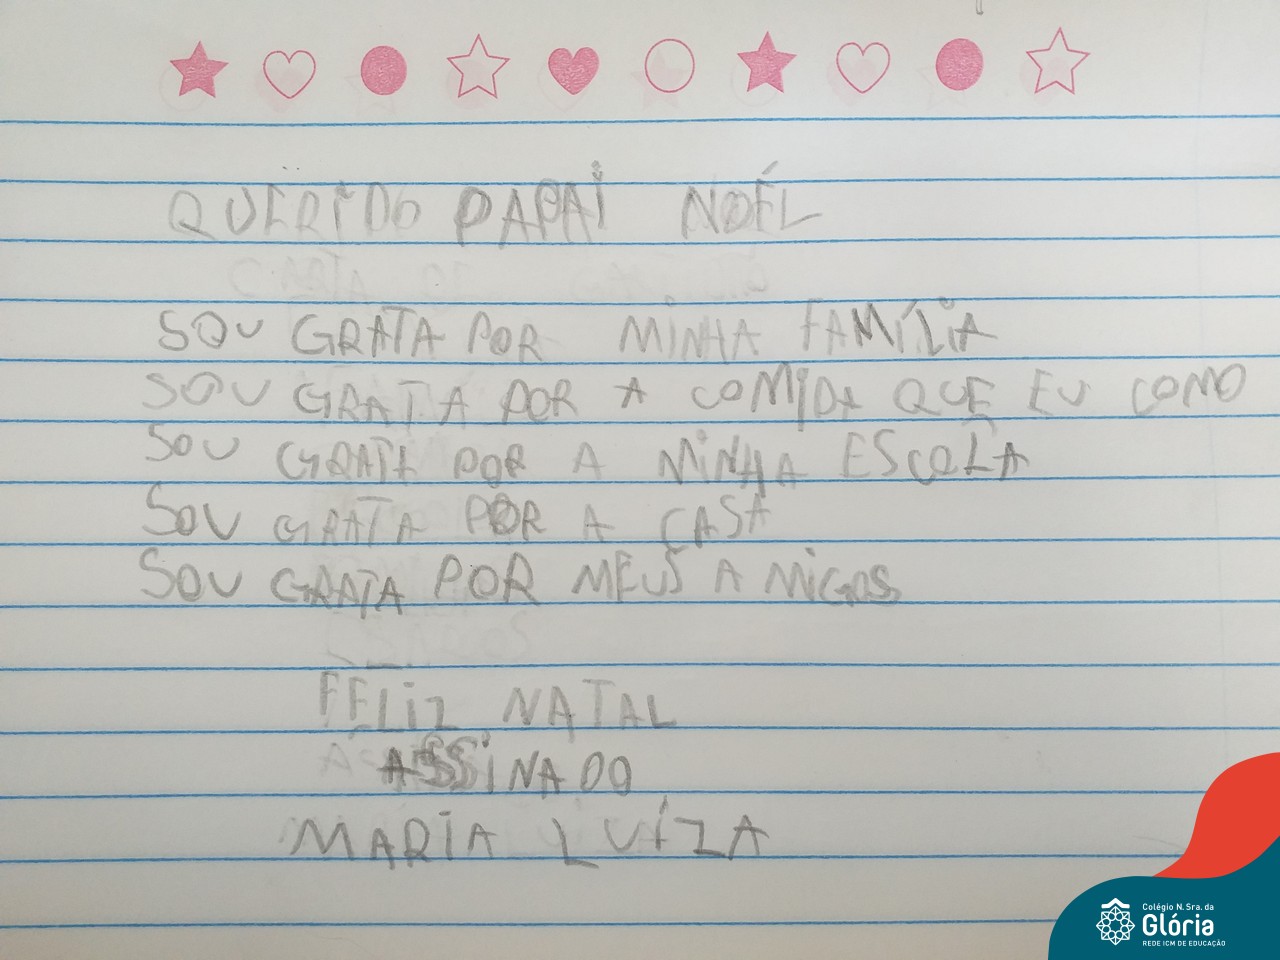 QUERIDO PAPAI NOÉL
SOU GRATA POR MINHA FAMÍLIA
SOU GRATA POR A COMIDA QUE EU COMO
SOU GRATA POR A MINHA ESCOLA
SOU GRATA POR A CASA
SOU GRATA POR MEUS AMIGOS
FELIZ NATAL
ASSINADO
MARIA LUÍZA
Colégio N. Sra. da
Glória
REDE ICM DE EDUCAÇÃO